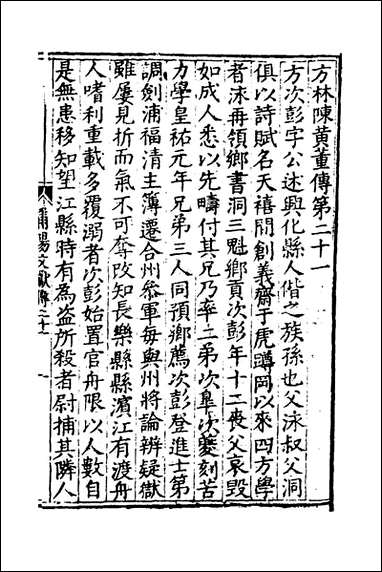 方林陳黃董傳第二十一
方次彭字公述興化縣人偕之族孫也父泳叔父洞
俱以詩賦名天禧間創義齋于虎蹲岡以來四方學
者泳再領鄉書洞三魁鄉貢次彭年十二喪父哀毀
如成人悉以先疇付其兄乃率二弟次臯次夔刻苦
力學皇祐元年兄弟三人同預鄉薦次彭登進士第
調劍浦福清主簿遷合州叅軍每與州將論辨疑獄
雖屢見折而氣不可奪改知長樂縣縣濱江有渡舟
人嗜利重載多覆溺者次彭始置官舟限以人數自
是無患移知望江縣時有為盜所殺者尉捕其隣人
莆陽文獻傳二十一
一